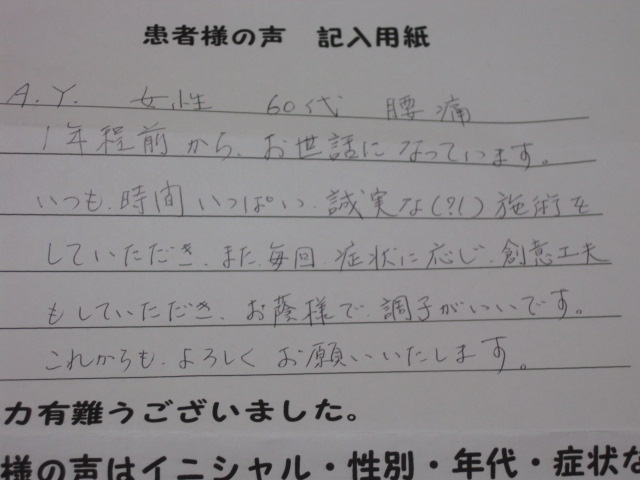 患者様の声　記入用紙
A.Y.　女性　60代　腰痛
1年程前から、お世話になっています。
いつも、時間いっぱい、誠実な(?!)施術を
していただき、また、毎回、症状に応じ、創意工夫
もしていただき、お蔭様で、調子がいいです。
これからも、よろしくお願いいたします。
力有難うございました。
様の声はイニシャル・性別・年代・症状な